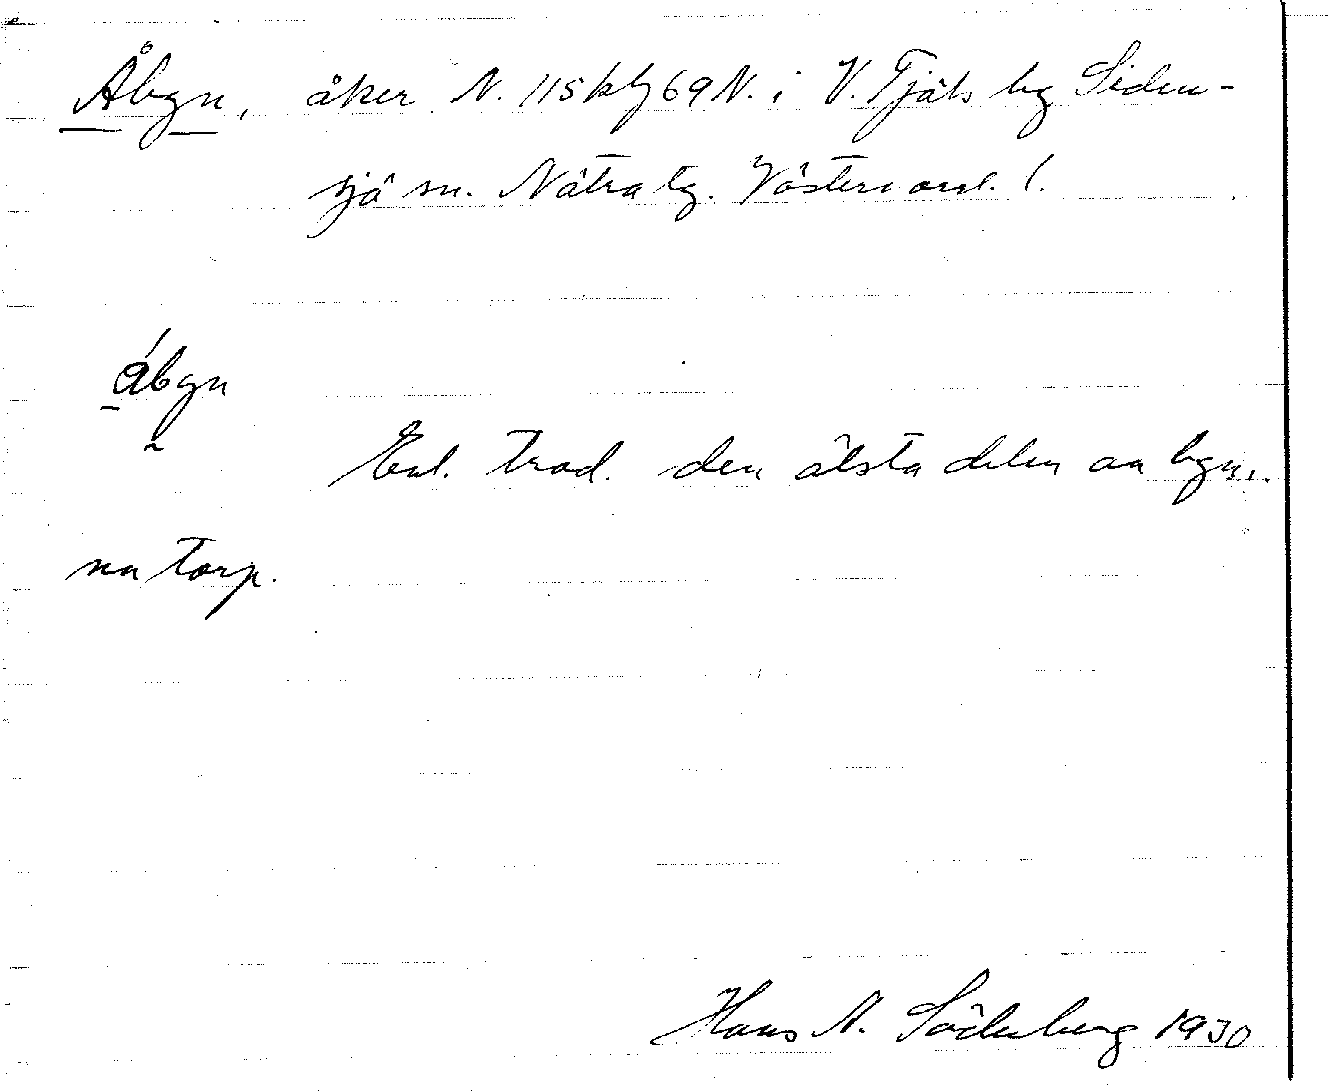 Åbyn, åker N. 115 kbf 69 N. i V. Tjäls by Siden-
sjö sn. Nätra tg. Västernorrl. l.
åbyn
Enl. trad. den älsta delen av byn.
nu torp.
Hans N. Söderberg 1930